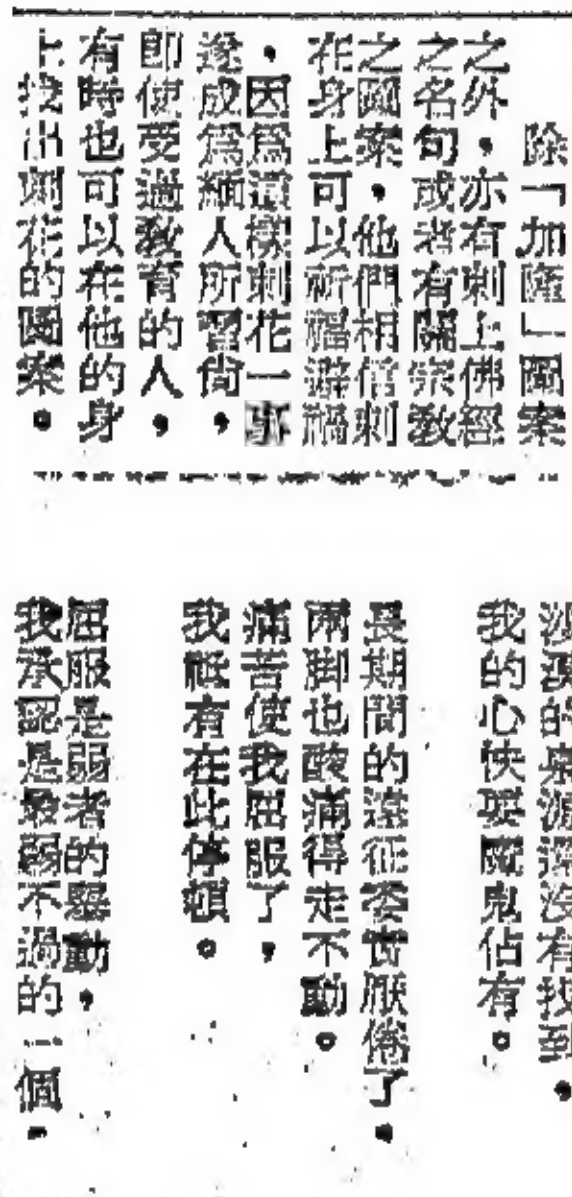 除「加隆」圖案
之外，亦有刺上佛經
之名句或者有關宗教
之圖案，他們相信刺
在身上可以祈福避禍
，因爲這樣刺花一事
遂成爲緬人所習尙，
即使受過敎育的人，
有時也可以在他的身
上找出刺花的圖案。
沙漠的泉源還沒有找到，
我的心快要魔鬼佔有。
長期間的遠征委實厭倦了，
兩脚也酸痛得走不動。
痛苦使我屈服了，
我祗有在此停頓。
屈服是弱者的擧動，
我承認是最弱不過的一個，